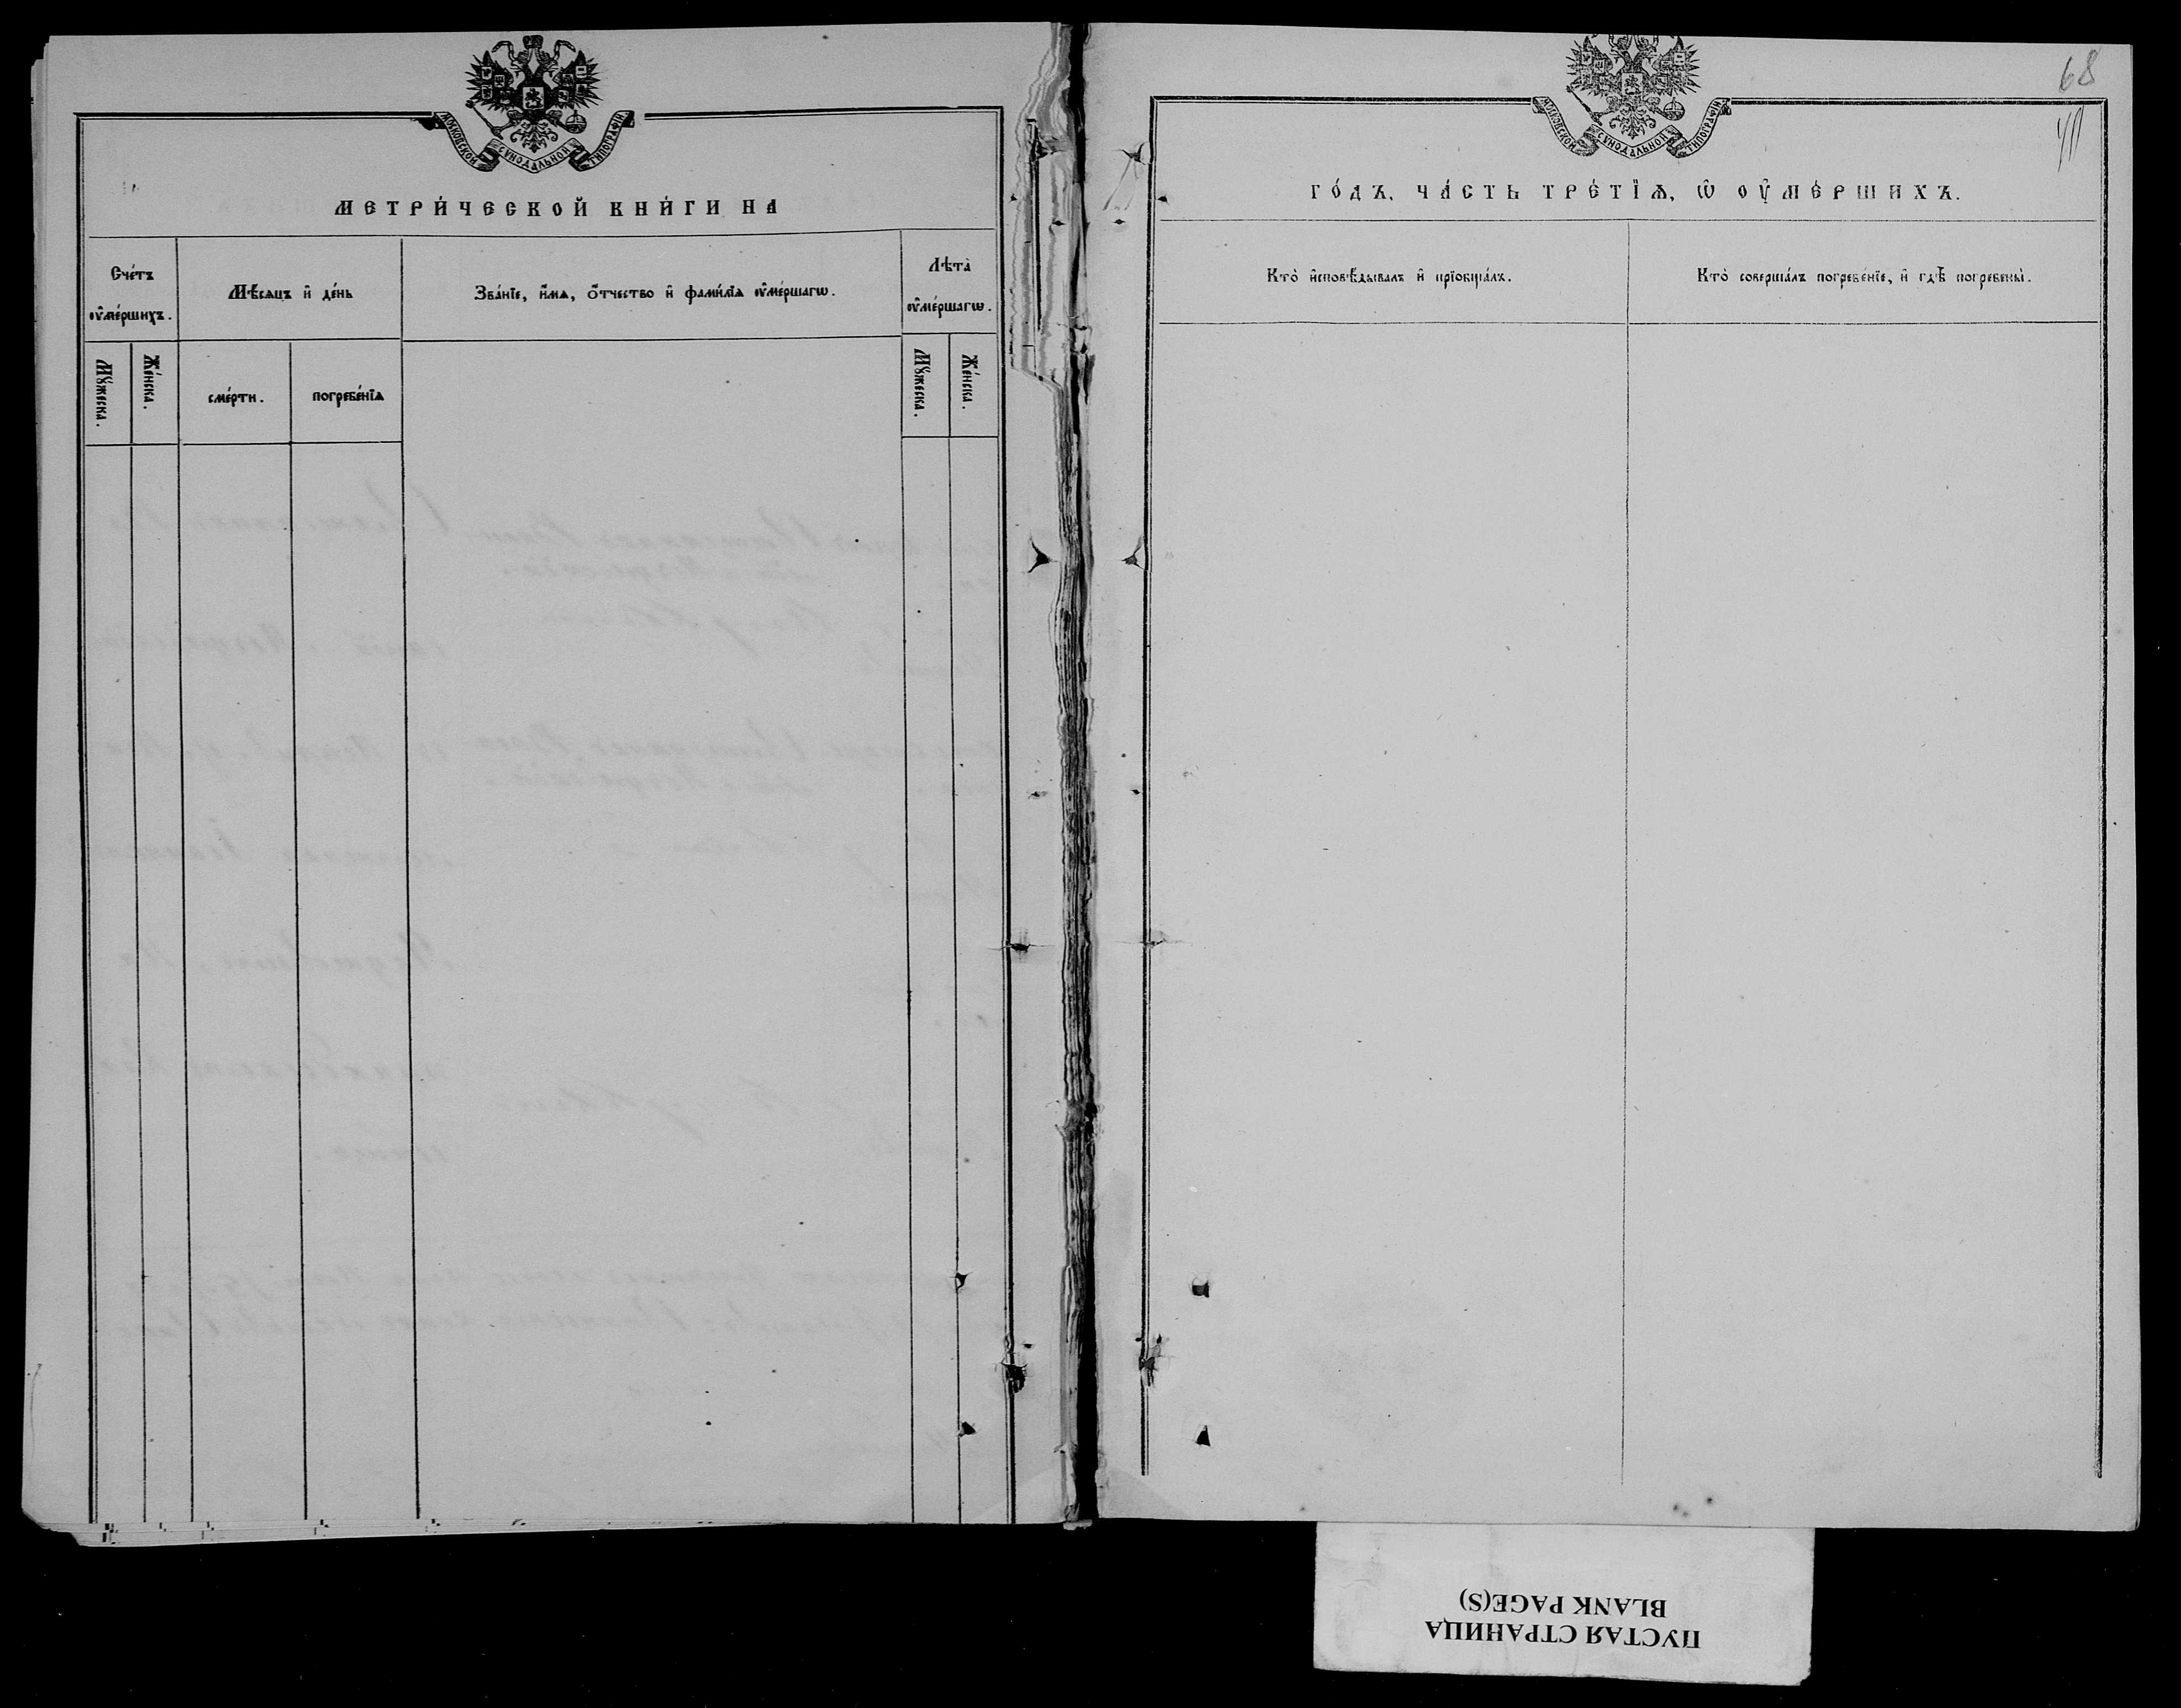 МОСКОВСКОЙ СѴНОДАЛЬНОЙ ТИПОГРАФІИ
МЕТРИ́ЧЕСКОЙ КНИ́ГИ НА
Сче́тъ оу҆ме́ршихъ.
Мѣ́сяцъ и҆ де́нь
Зва́нїе, и҆́мѧ, ѻ҆́тчество и҆ фами́лїѧ оу҆ме́ршагѡ.
Лѣ́та̀ оу҆ме́ршагѡ.
Мꙋ́жеска.
Же́нска.
сме́рти.
погребе́нїѧ
Мꙋ́жеска.
Же́нска.
68
МОСКОВСКОЙ СѴНОДАЛЬНОЙ ТИПОГРАФІИ
ГО́ДЪ, ЧА́СТЬ ТРЕ́ТЇѦ, Ѡ҆ ОУ҆МЕ́РШИХЪ.
Кто̀ и҆сповѣ́дывалъ и҆ прїобща́лъ.
Кто̀ соверша́лъ погребе́нїе, и҆ гдѣ̀ погребены̀.
ПУСТАЯ СТРАНИЦА
BLANK PAGE(S)